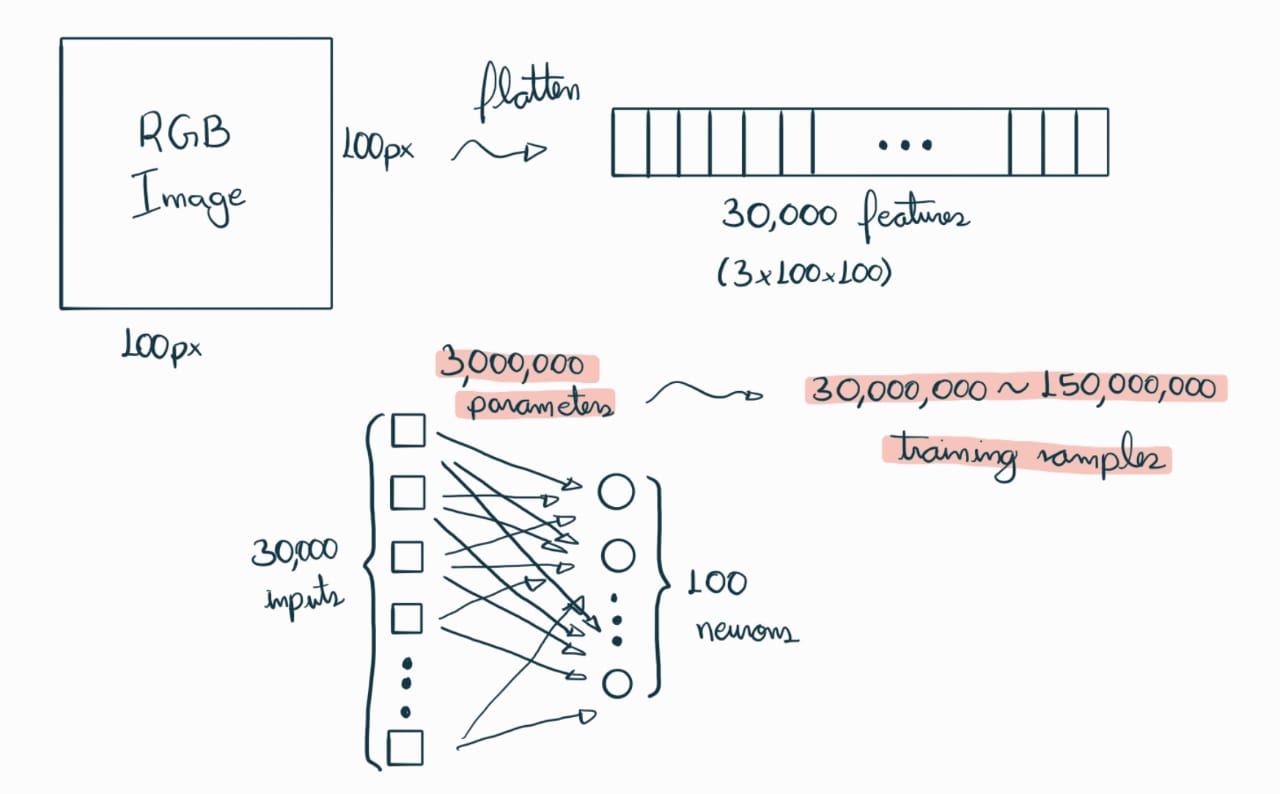 RGB
Image
100px
100px
flatten
30,000 features
(3x100x100)
3,000,000
parameters
30,000,000 ~ 150,000,000
training samples
30,000
inputs
100
neurons